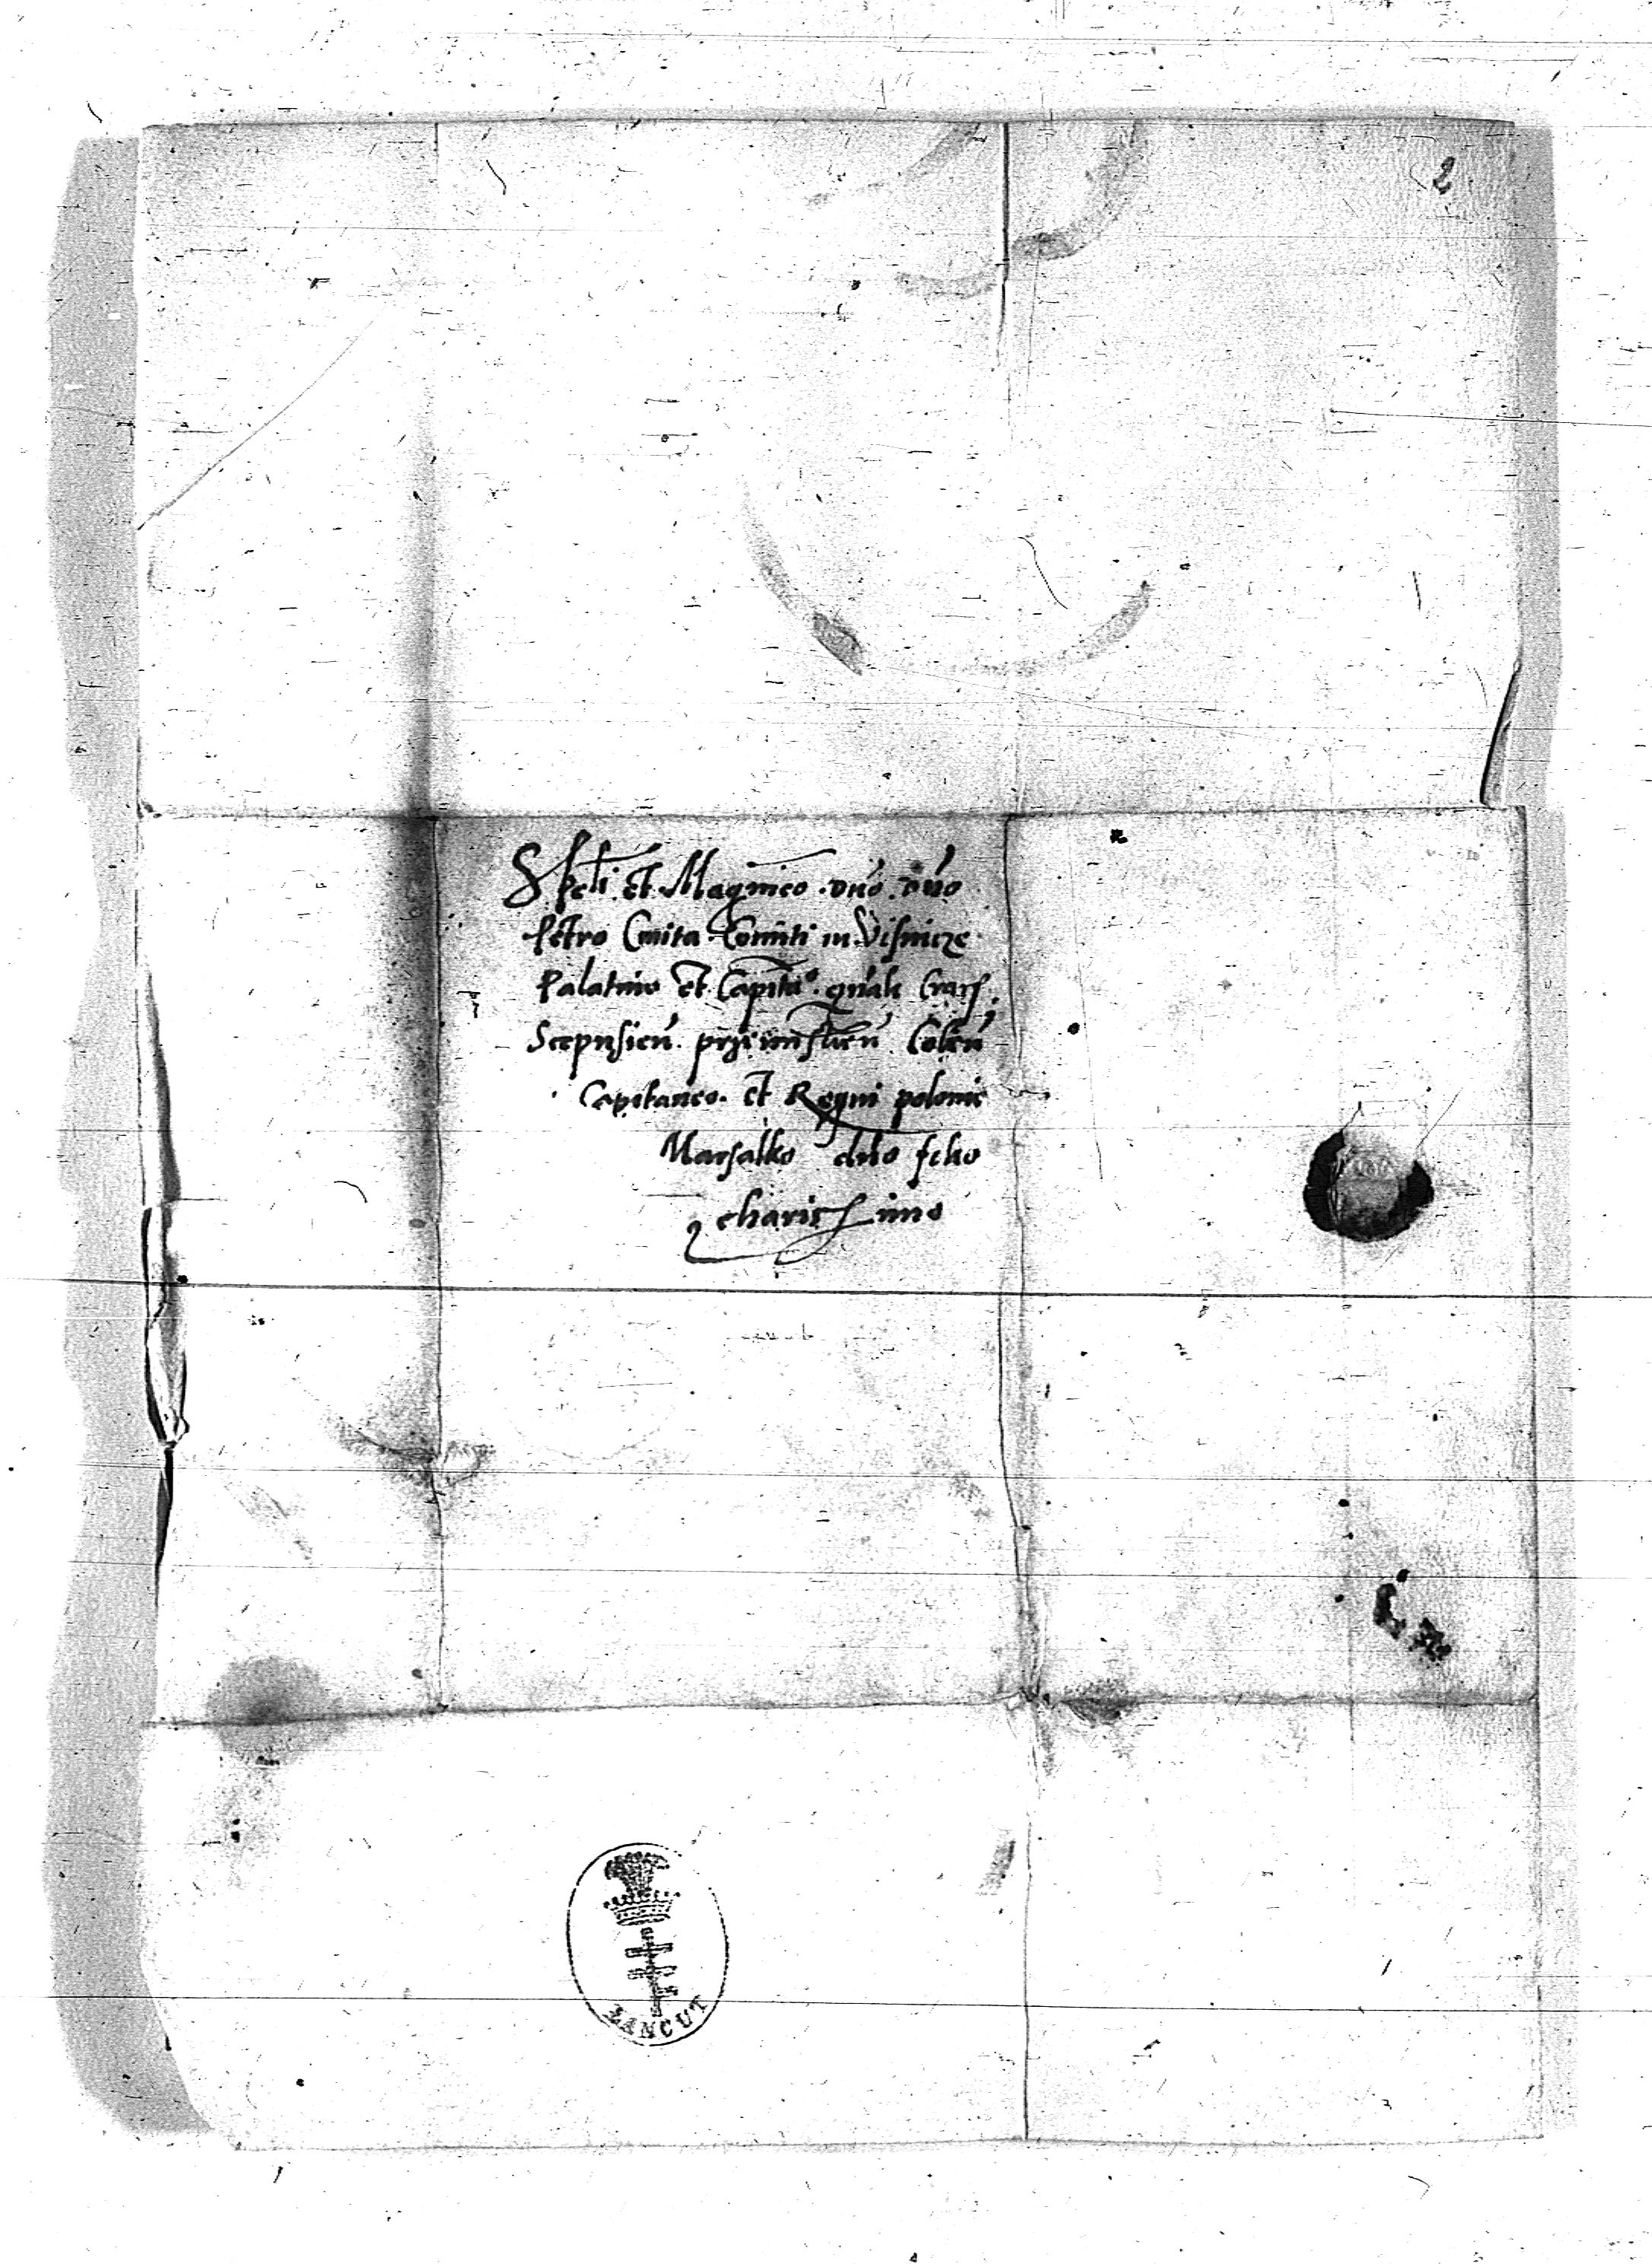 2
Spcli et Magnico dno dno
Petro Cmita Comiti in Visnicze
Palatino et Capit͞o gn͞ali Crac͞
Scepusien͞ prz͞imislien͞ Colen͞
Capitaneo et Regni polonie
Marsalko d͞no filio
charissimo
ŁAŃCUT